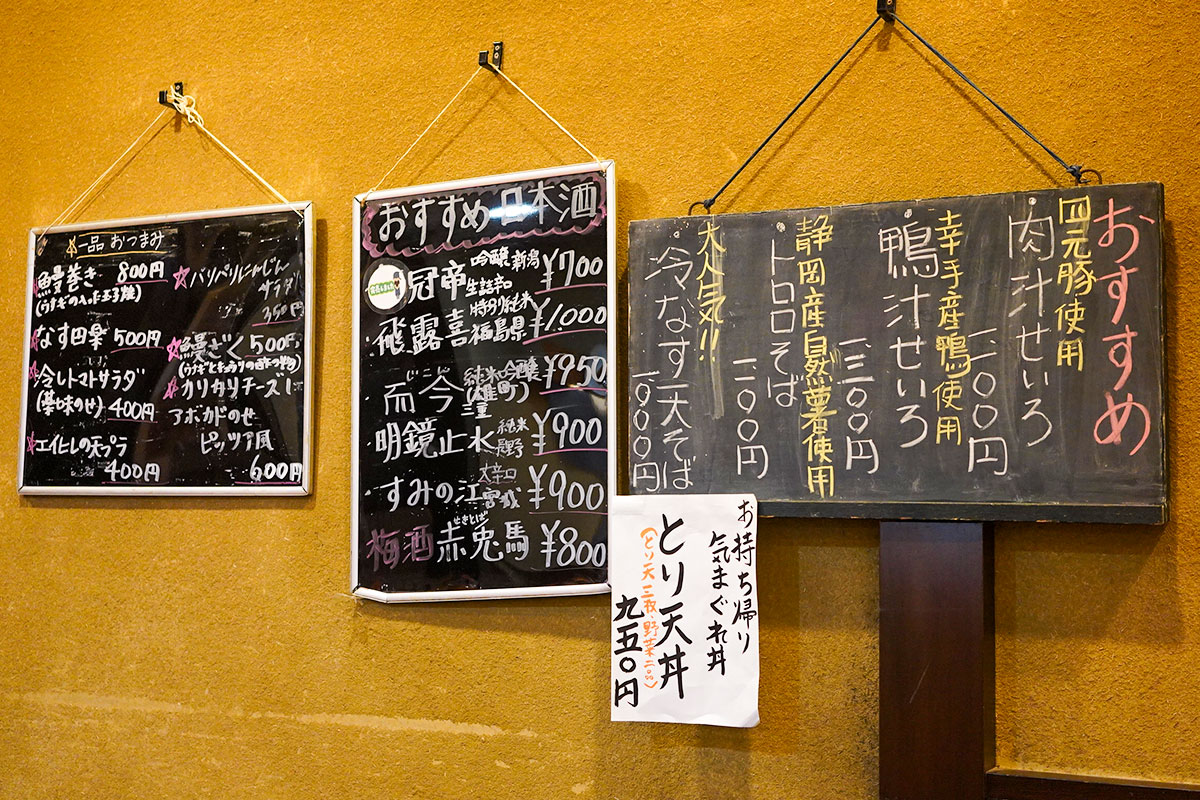 一品 おつまみ
鰻巻き 800円
(うなぎの入った玉子焼)
なす田楽 500円
冷しトマトサラダ
(薬味のせ) 400円
エイヒレの天プラ
400円
パリパリにんじん
サラダ
350円
鰻ざく 500円
カリカリチーズ
アボカドのせ
ピッツア風
600円
おすすめ日本酒
冠帝 吟醸 新潟 ¥700
生詰辛口
飛露喜 特別純米 福島県 ¥1,000
じこん
而今 純米吟醸 (雄町) 三重 ¥950
明鏡止水 純米 長野 ¥900
すみの江 大辛口 宮城 ¥900
せきとば
梅酒 赤兎馬 ¥800
おすすめ
四元豚使用
肉汁せいろ
一、一〇〇円
幸手産鴨使用
鴨汁せいろ
一、三〇〇円
静岡産自然薯使用
トロロそば
一、一〇〇円
大人気!!
冷なす天そば
一、一〇〇円
お持ち帰り
気まぐれ丼
とり天丼
(とり天三枚、野菜二つ)
九五〇円